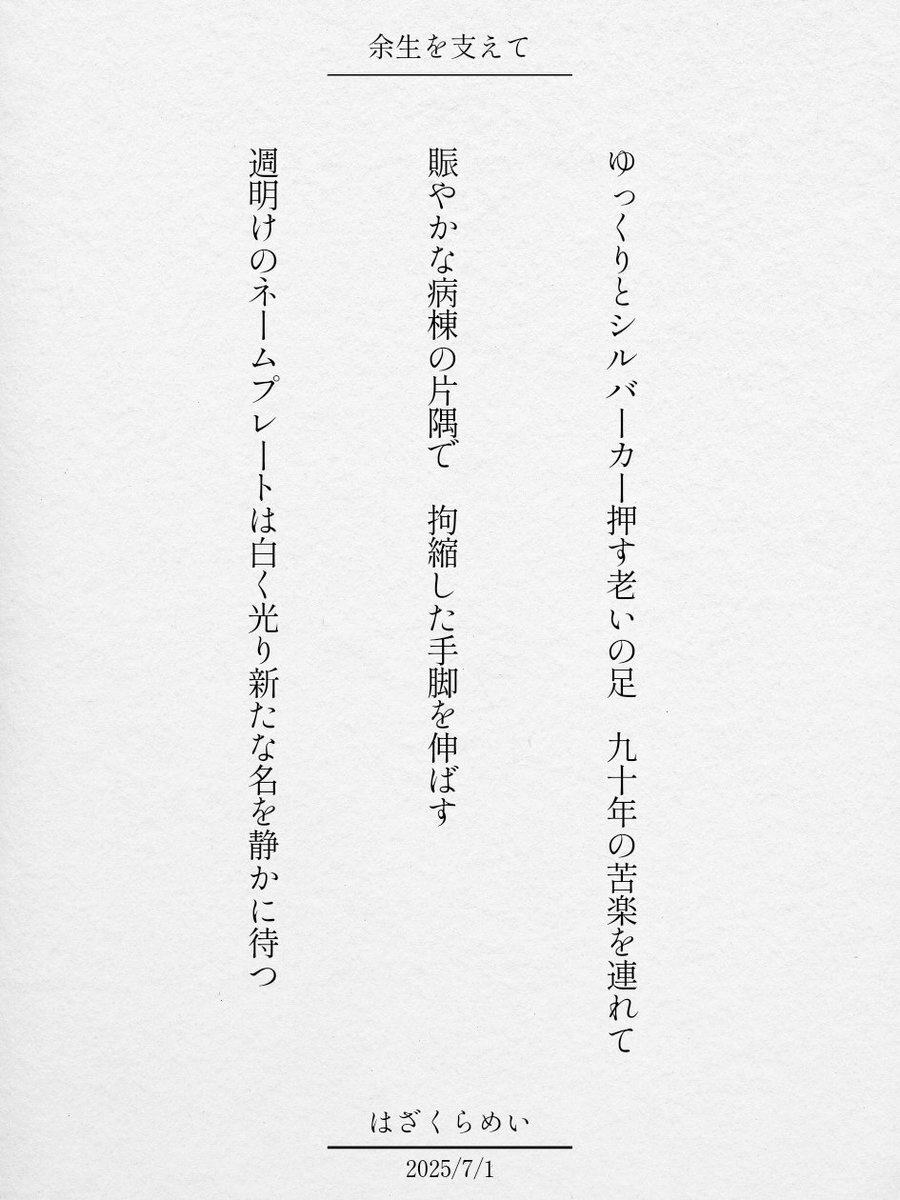 余生を支えて
ゆっくりとシルバーカー押す老いの足　九十年の苦楽を連れて
賑やかな病棟の片隅で　拘縮した手脚を伸ばす
週明けのネームプレートは白く光り新たな名を静かに待つ
はざくらめい
2025/7/1